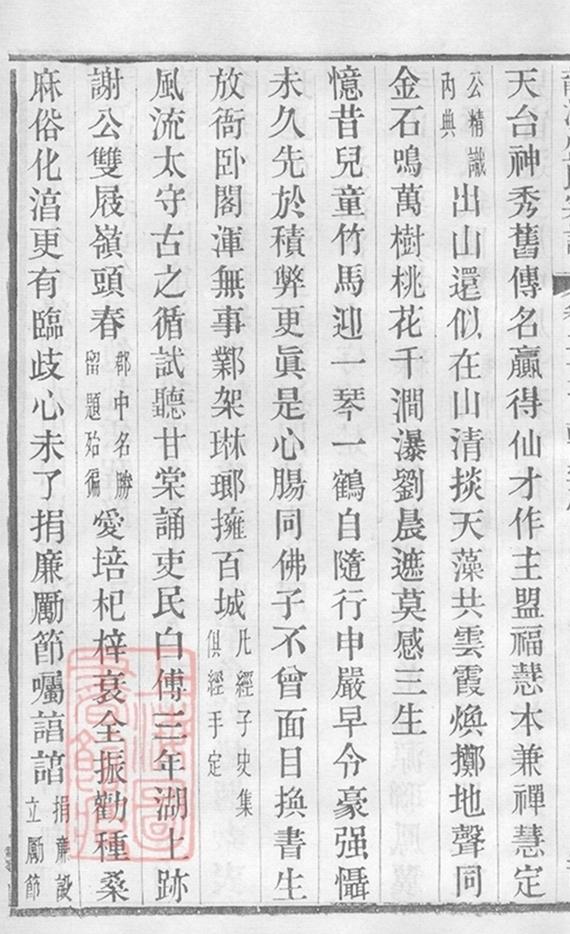 天台神秀舊傳名贏得仙才作主盟福慧本兼禪慧定
公精識內典出山還似在山清掞天藻共雲霞煥擲地聲同
金石鳴萬樹桃花千澗瀑劉晨遮莫感三生
憶昔兒童竹馬迎一琴一鶴自隨行申嚴早令豪强懾
未久先於積弊更眞是心腸同佛子不曾面目換書生
放衙卧閣渾無事鄴架琳瑯擁百城凡經子史集俱經手定
風流太守古之循試聽甘棠誦吏民白傅三年湖上跡
謝公雙屐嶺頭春郡中名勝留題殆徧愛培杞梓衰全振勸種桑
麻俗化湻更有臨歧心未了捐廉勵節囑諄諄捐廉設立勵節